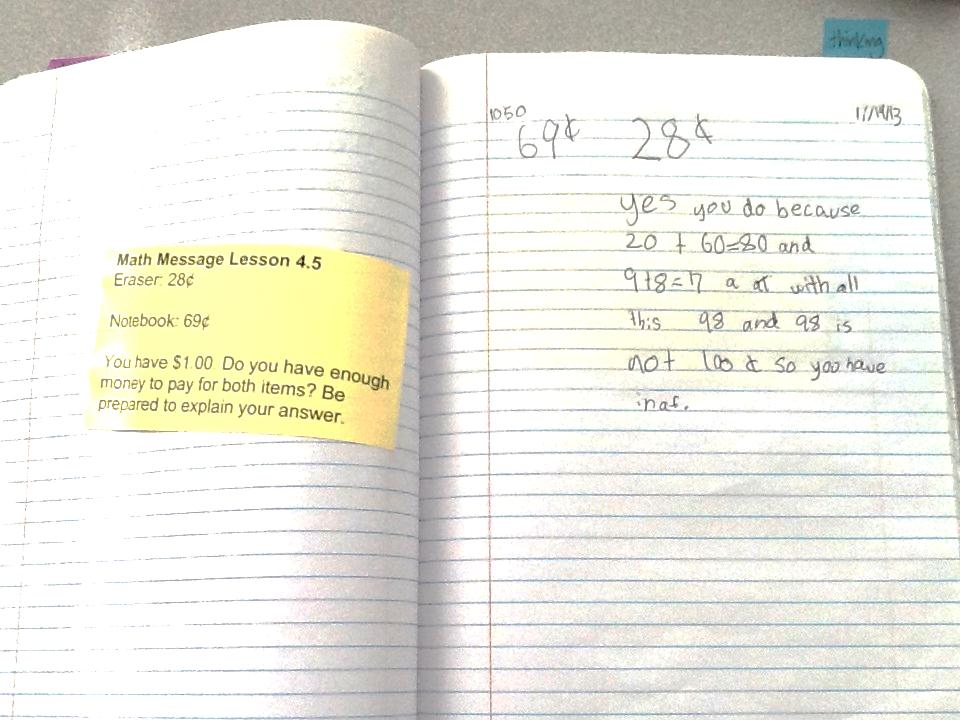 thinking
Math Message Lesson 4.5
Eraser: 28¢
Notebook: 69¢
You have $1.00. Do you have enough
money to pay for both items? Be
prepared to explain your answer.
1050
11/19/13
69¢ 28¢
yes you do because
20 + 60=80 and
9+8=17 a with all
this 98 and 98 is
not 100 ¢ so you have
inaf.